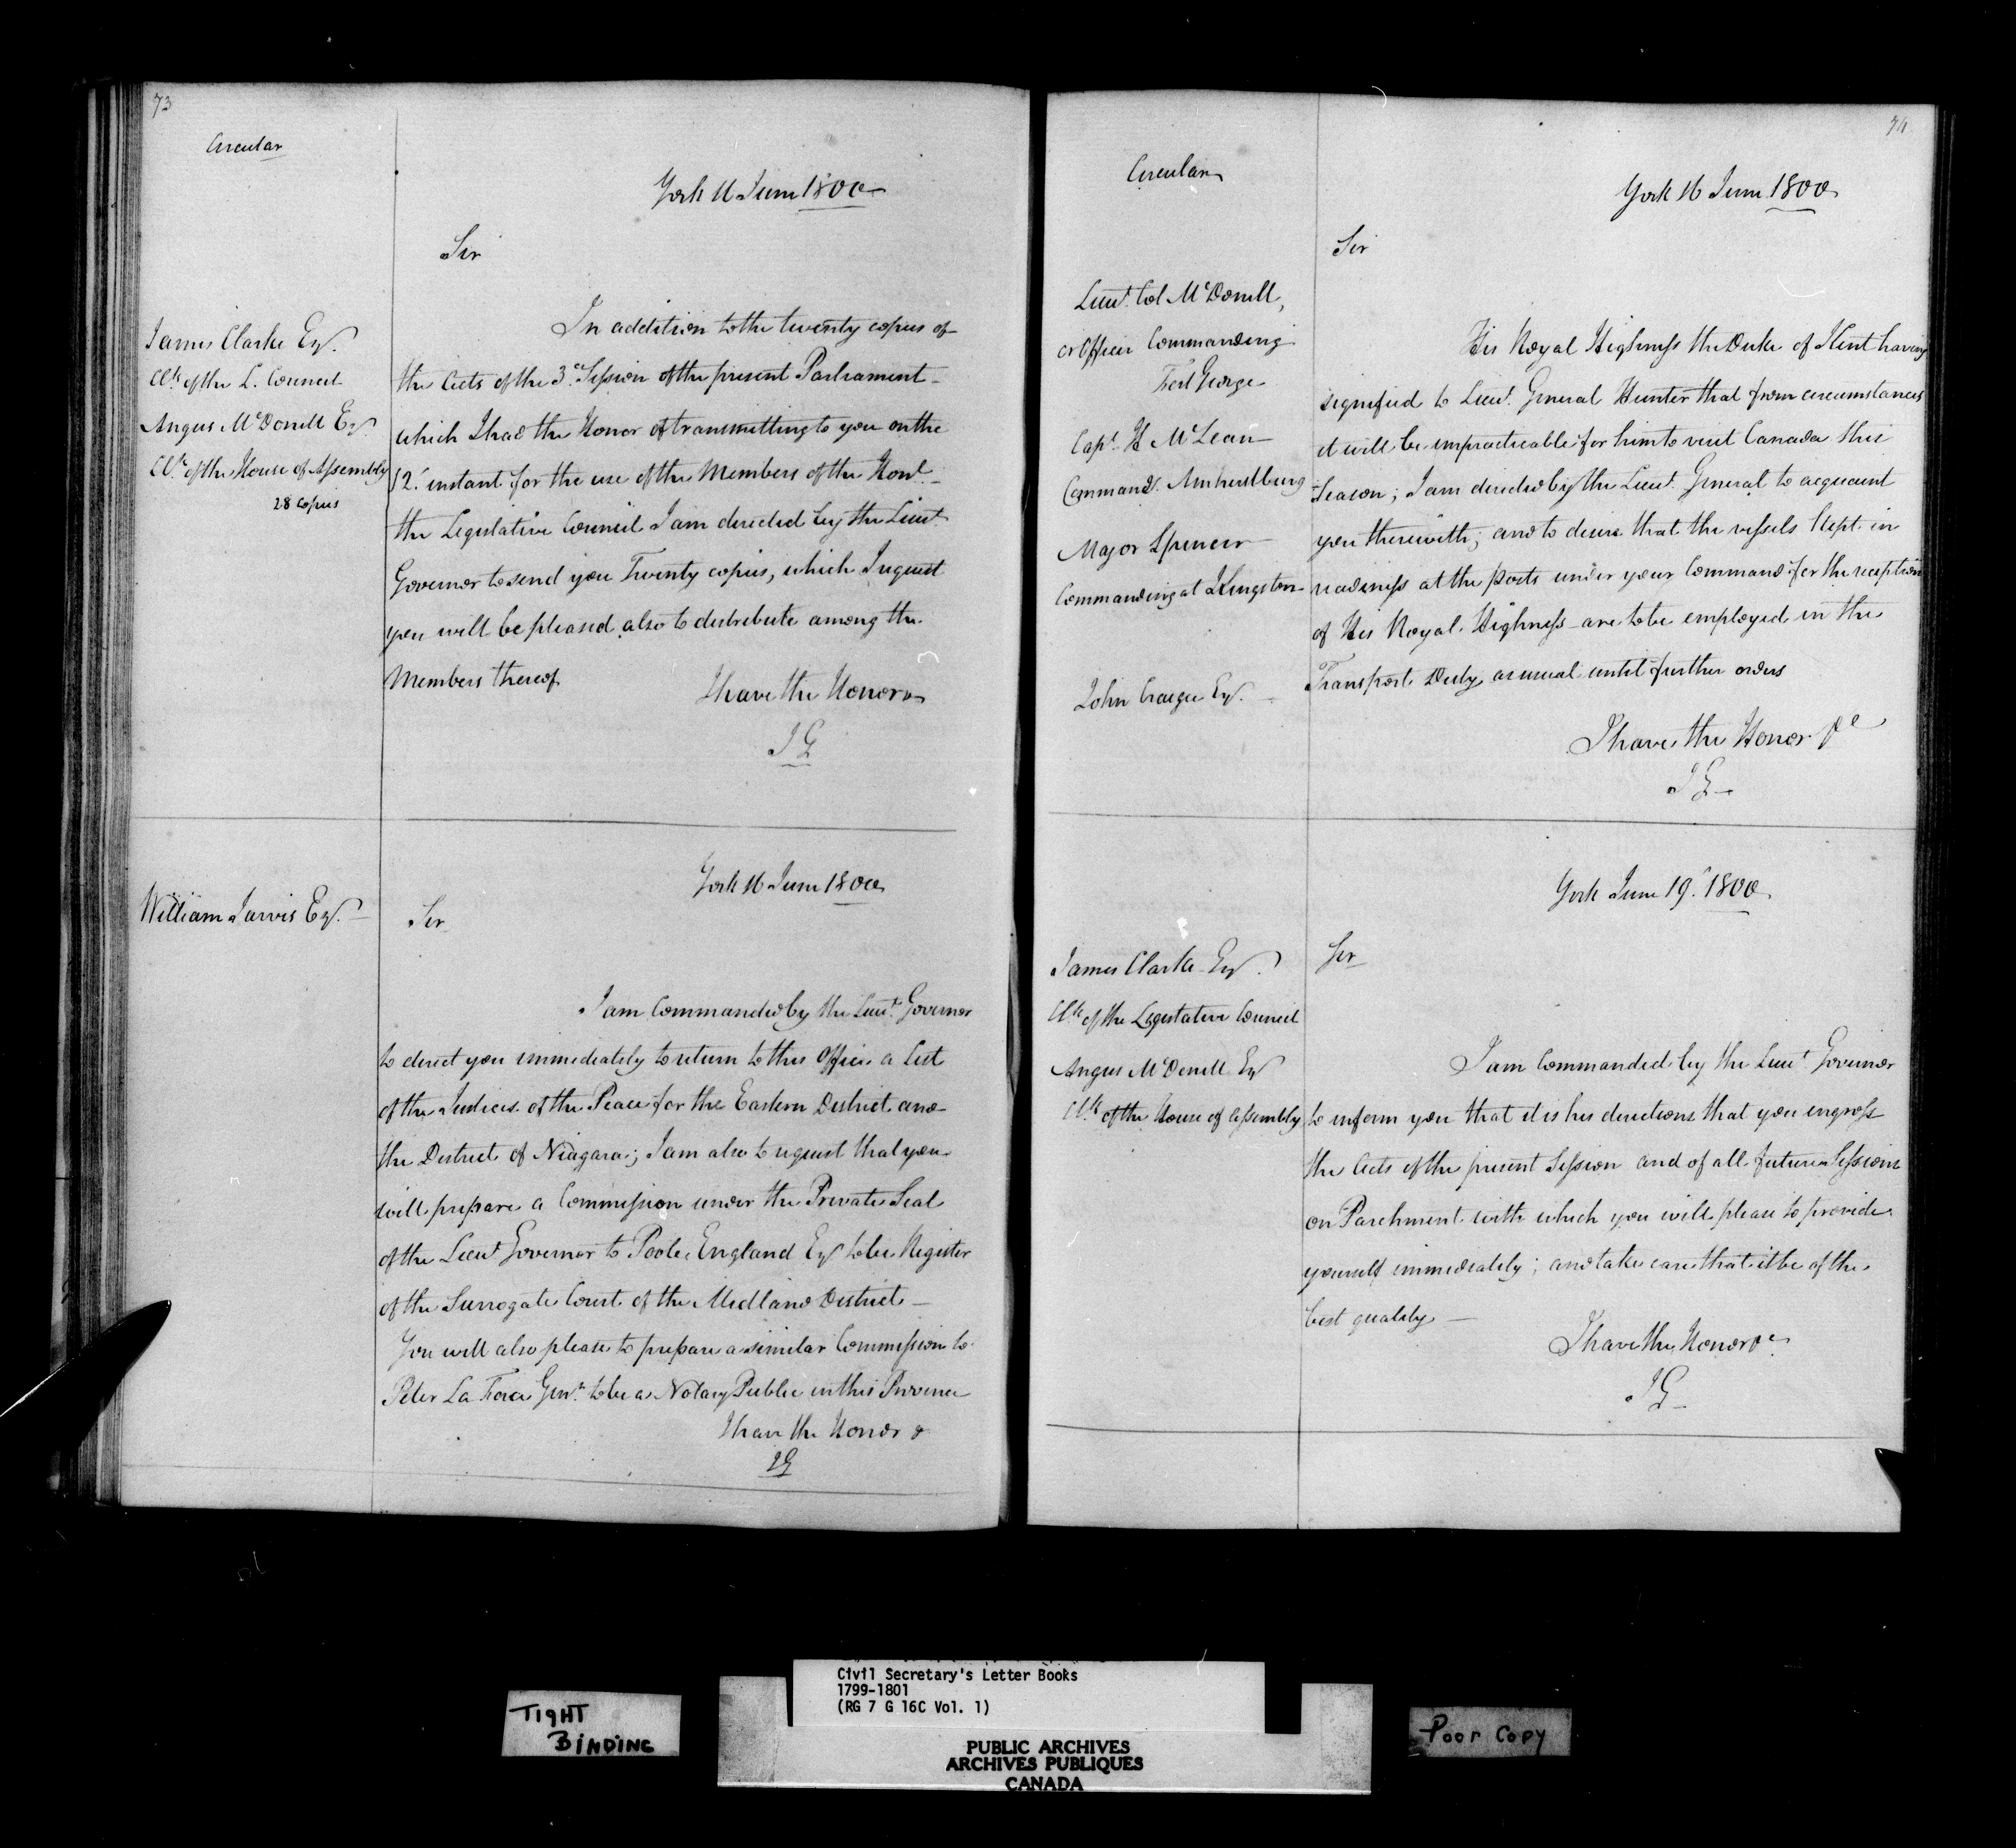 73
Circular
York 16 June 1800
Sir
James Clarke Esq.
Clk of the L. Council
Angus McDonell Esq.
Clk of the House of Assembly
28 Copies
In addition to the twenty copies of
the Acts of the 3d Session of the present Parliament
which I had the Honor of transmitting to you on the
12th instant for the use of the Members of the Honl.
the Legislative Council I am directed by the Lieut
Governor to send you Twenty copies, which I request
you will be pleased also to distribute among the
Members thereof
I have the Honor &
JG
William Jarvis Esq.
York 16 June 1800
Sir
I am Commanded by the Lieut. Governor
to direct you immediately to return to this Office a List
of the Justices of the Peace for the Eastern District and
the District of Niagara; I am also to request that you
will prepare a Commission under the Private Seal
of the Lieut Governor to Poole England Esq to be Register
of the Surrogate Court of the Midland District
You will also please to prepare a similar Commission to
Peter La Force Gent. to be a Notary Public in this Province
I have the Honor &
JG
74
Circular
York 16 June 1800
Sir
Lieut. Col McDonell,
or Officer Commanding
Fort George
Capt. H McLean
Command. Amherstburg
Major Spencer
Commanding at Kingston
John Craigie Esq.
His Royal Highness the Duke of Kent having
signified to Lieut. General Hunter that from circumstances
it will be impracticable for him to visit Canada this
Season; I am directed by the Lieut. General to acquaint
you therewith; and to desire that the vessels kept in
readiness at the Posts under your Command for the reception
of His Royal Highness are to be employed in the
Transport Duty as usual until further orders
I have the Honor &c
JG
York June 19th 1800
James Clarke Esq.
Clk of the Legislative Council
Angus McDonell Esq
Clk of the House of Assembly
Sir
I am Commanded by the Lieut Governor
to inform you that it is his directions that you engross
the Acts of the present Session and of all future Sessions
on Parchment with which you will please to provide
yourself immediately; and take care that it be of the
best quality
I have the Honor &c
JG
TIGHT
BINDING
Civil Secretary's Letter Books
1799-1801
(RG 7 G 16C Vol. 1)
PUBLIC ARCHIVES
ARCHIVES PUBLIQUES
CANADA
Poor Copy